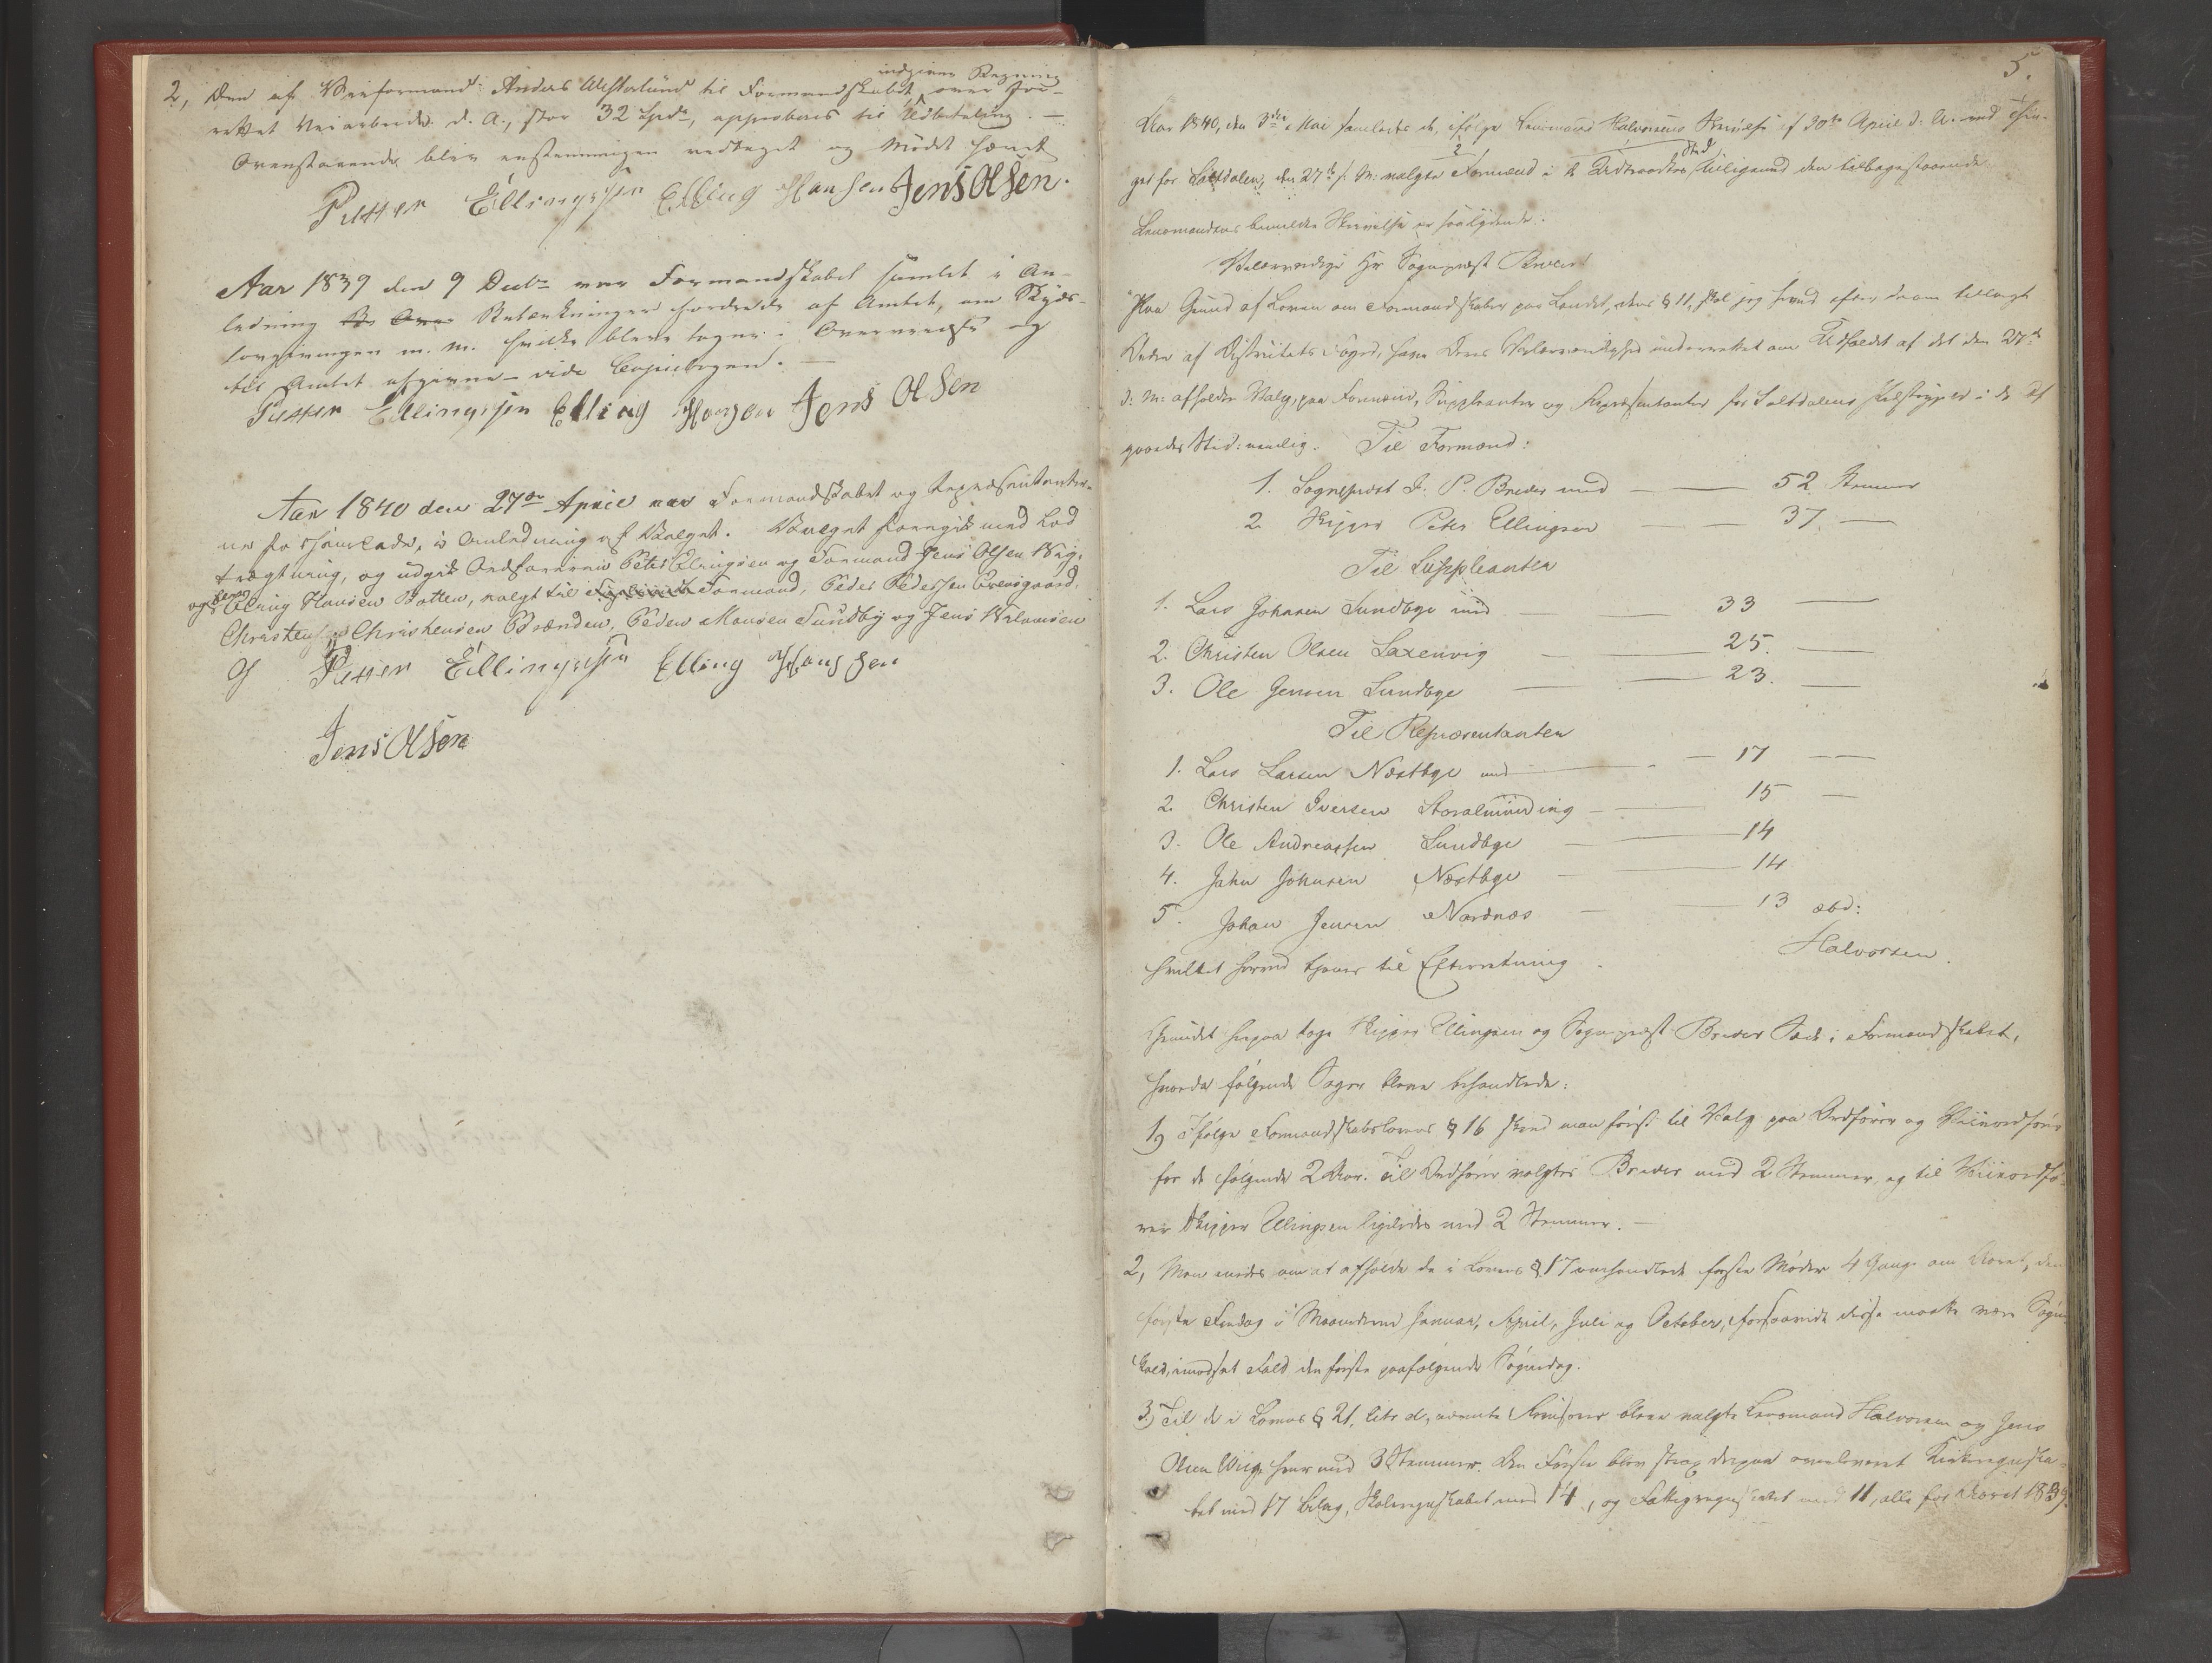 2, Den af Veiformand Anders Westerlund til Formandskabet indgivne Regning over For-
rettet Veiarbeide d. A., stor 32 Spd, approberes til Udbetaling. —
Ovenstaaende blev enstemmigen vedtaget og Mødet hævet
Petter Ellingsen Elling Hansen Jens Olsen.
Aar 1839 den 9 Decbr var Formandskabet samlet i An-
ledning Betænkninger fordrede af Amtet, om Skyds-
lovgivningen m. m. hvilke bleve tagne i Overveielse og
til Amtet afgivne - vide Copiebogen. —
Petter Ellingsen Elling Hansen Jens Olsen
Aar 1840 den 27de April var Formandskabet og Repræsentanter-
ne forsamlede, i Anledning af Valget. Valget foregik med Lod
trægtning, og udgik Ordføreren Peter Ellingsen og Formand Jens Olsen Wig,
og Elling Hansen Botten, valgt til Formand, Peder Pedersen Evensgaard,
Christen Christensen Brænden, Peder Monsen Sundby og Jens Nilsen
Petter Ellingsen Elling Hansen
Jens Olsen
5.
Aar 1840, den 3die Mai samledes de, ifølge Lensmand Halvorsens Skrivelse af 30te April d. A. ved Thin-
get for Saltdalen, den 27de s. M. valgte 2 Formænd i de Udtraadtes Sted tilligemed den tilbagestaaende.
Lensmandens bemeldte Skrivelse er saalydende:
Velærværdige Hr Sogneprest Breder!
"Paa Grund af Loven om Formandskaber paa Landet, dens § 11, skal jeg herved efter
d: M: afholdte Valg, paa Formænd, Suppleanter og Repræsentanter for Saltdalens Præstegjeld i de af
gaaedes Sted: nemlig: Til Formænd:
1. Sogneprest J. P. Breder med — 52 Stemmer
2 Skipper Peter Ellingsen — 37. —
Til Suppleanter
1. Lars Johnsen Sundbye med — 33 —
2. Christen Olsen Saxenvig — 25. —
3. Ole Jensen Sundbye — 23. —
Til Repræsentanter
1. Lars Larsen Næstbye med — 17 —
2. Christen Iversen Storalminding — 15 —
3. Ole Andreassen Sundbye — 14
4. John Johnsen Næstbye — 14
5. Johan Jensen Nordnæs — 13 æbd:
hvilket herved tjener til Efterretning. Halvorsen.
Grundet herpaa toge Skipper Ellingsen og Sogneprest Breder Sæde i Formandskabet,
hvorda følgende Sager bleve behandlede:
1, Ifølge Formandskabslovens § 16 skred man først til Valg paa Ordfører og Viceordfører
for de følgende 2 Aar. Til Ordfører valgtes Breder med 2 Stemmer, og til Viceordfø-
rer Skipper Ellingsen ligeledes med 2 Stemmer. —
2, Man enedes om at afholde de i Lovens § 17 omhandlede faste Møder 4 Gange om Aaret, den
første Fredag i Maanederne Januar, April, Juli og October, forsaavidt disse maatte være Søgne
modsat Fald den første paafølgende Søgnedag.
3, Til de i Lovens § 21, litr d, nævnte Revisorer bleve valgte Lensmand Halvorsen og Jens
Olsen Wiig hver med 3 Stemmer. Den Første blev strax derpaa overleveret Kirkeregnska-
bet med 17 Bilag, Skoleregnskabet med 14, og Fattigregnskabet med 11, alle for Aaret 1839.